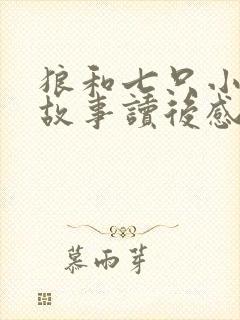 狼和七只小
故事讀後感
慕雨芽